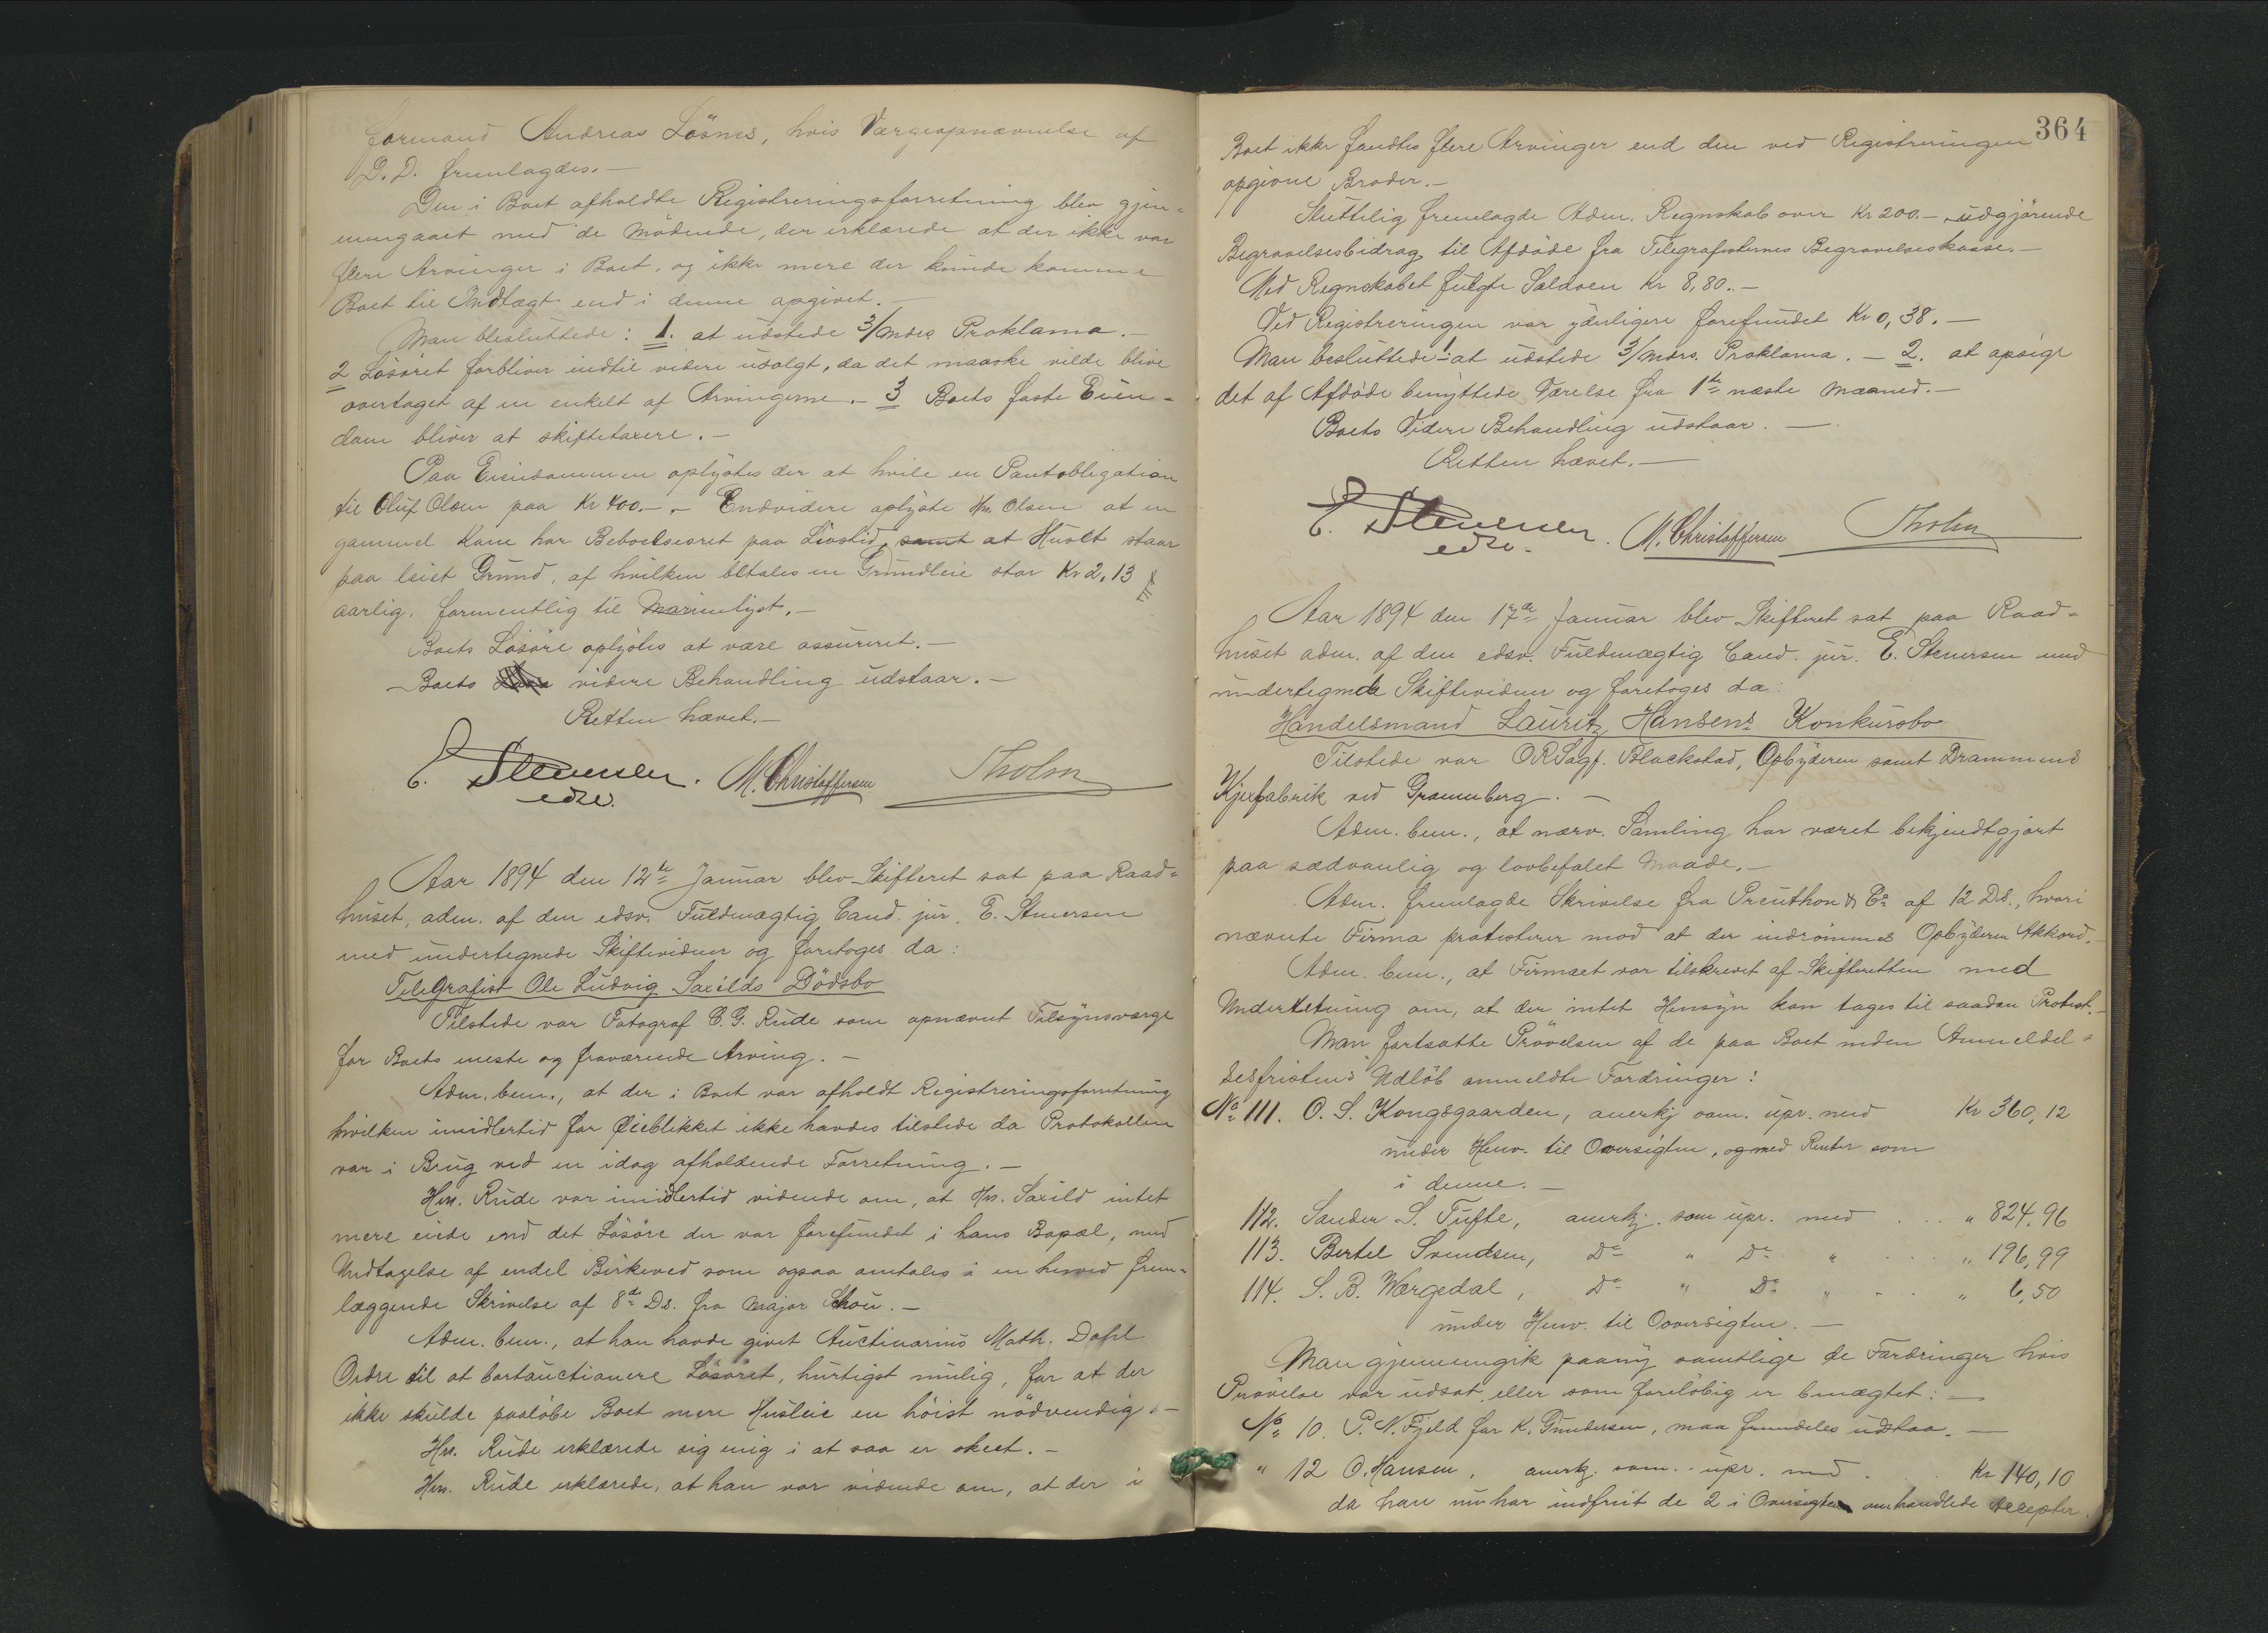 formand Andreas Lösnes, hvis Værgeopnævnelse af
D. D. fremlagdes.—
Den i Boet afholdte Registreringsforretning blev gjen=
nemgaaet med de Mödende, der erklærede at der ikke var
flere Arvinger i Boet, og ikke mere der kunde komme
Boet til Indtægt end i denne opgivet.—
Man besluttede: 1. at udstede 3/mdrs Proklama.—
2 Lösöret forbliver indtil videre usolgt, da det maaske vilde blive
overtaget af en enkelt af Arvingerne.— 3 Boets faste Eien=
dom bliver at skiftetaxere.—
Paa Eiendommen oplystes der at hvile en Pantobligation
til Oluf Olsen paa Kr 400.—.— Endvidere oplyste Hr. Olsen at en
gammel Kone har Beboelsesret paa Livstid, samt at Huset staar
paa leiet Grund, af hvilken betales en Grundleie stor Kr 2,13
aarlig, formentlig til Marienlyst.—
Boets Lösöre oplystes at være assureret.—
Boets videre Behandling udstaar.—
Retten hævet.—
E. Stenersen. M. Christoffersen Tholm
edsv.
Aar 1894 den 12te Januar blev Skifteret sat paa Raad=
huset, adm. af den edsv. Fuldmægtig Cand. jur. E. Stenersen
med undertegnede Skiftevidner og foretoges da:
Telegrafist Ole Ludvig Saxilds Dödsbo
Tilstede var Fotograf C. G. Rude som opnævnt Tilsynsværge
for Boets eneste og fraværende Arving.—
Adm. bem., at der i Boet var afholdt Registreringsforretning
hvilken imidlertid for Öieblikket ikke havdes tilstede da Protokollen
var i Brug ved en idag afholdende Forretning.—
Hr. Rude var imidlertid vidende om, at Hr. Saxild intet
mere eiede end det Lösöre der var forefundet i hans Bopæl, med
Undtagelse af endel Birkeved som ogsaa omtales i en herved frem=
læggende Skrivelse af 8de Ds. fra Major Schou.—
Adm. bem., at han havde givet Auctinarius Math. Dahl
Ordre til at bortauctionere Lösöret, hurtigst mulig, for at der
ikke skulde paalöbe Boet mere Husleie en höist nödvendig.—
Hr. Rude erklærede sig enig i at saa er skeet.—
Hr. Rude erklærede, at han var vidende om, at der i
364
Boet ikke fandtes flere Arvinger end den ved Registreringen
opgivne Broder.—
Sluttelig fremlagde Adm. Regnskab over Kr 200.— udgjörende
Begravelsesbidrag til Afdöde fra Telegrafisternes Begravelseskasse.—
Med Regnskabet fulgte Saldoen Kr 8,80.—
Ved Registreringen var yderligere forefundet Kr 0,38.—
Man besluttede 1. at udstede 3/mdrs. Proklama.— 2. at opsige
det af Afdöde benyttede Værelse fra 1ste næste Maaned.—
Boets Videre Behandling udstaar.—
Retten hævet.—
E. Stenersen. M. Christoffersen Tholm
edsv.
Aar 1894 den 17de Januar blev Skifteret sat paa Raad=
huset adm. af den edsv. Fuldmægtig Cand. jur. E. Stenersen med
undertegnede Skiftevidner og foretoges da:
Handelsmand Lauritz Hansens Konkursbo
Tilstede var O.R.Sagf. Blackstad, Opbyderen samt Drammens
Kjexfabrik ved Gramenberg.—
Adm. bem., at nærv. Samling har været bekjendtgjort
paa sædvanlig og lovbefalet Maade.—
Adm. fremlagde Skrivelse fra Preuthon & Co af 12 Ds., hvori
nævnte Firma protesterer mod at der indrömmes Opbyderen Akkord.—
Adm. bem., at Firmaet var tilskrevet af Skifteretten med
Underretning om, at der intet Hensyn kan tages til saadan Protest.—
Man fortsatte Prövelsen af de paa Boet inden Anmeldel=
sesfristens Udlöb anmeldte Fordringer:
No 111. O. S. Kongsgaarden, anerkj som. upr. med Kr 360,12
under Henv. til Oversigten, og med Renter som
i denne.—
112. Sander S. Tufte, anerkj. som upr. med . . . " 824,96
113. Bertel Svendsen, Do " Do " . . . " 196,99
114. S. B. Wærgedal, Do " Do " . . . " 6,50
under Henv. til Ooversigten.—
Man gjennemgik paany samtlige de Fordringer hvis
Prövelse var udsat eller som foreløbig er benægtet:—
No 10. P. N. Fjeld for K. Gundersen, maa fremdeles udstaa.—
" 12 O. Hansen, anerkj. som. upr. med . . . Kr 140,10
da han nu har indfriet de 2 i Oversigten omhandlede Accepter.